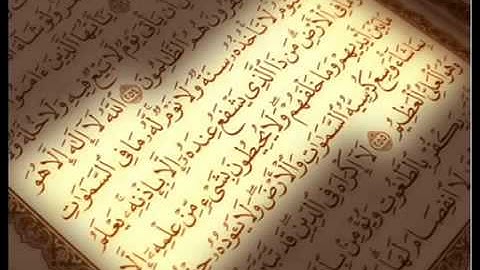 وَلَا خُلَّةٌ
هُمُ ٱلظَّٰلِمُونَ ٢٥٤ ٱللَّهُ لَآ إِلَٰهَ إِلَّا هُوَ
لَا تَأْخُذُهُۥ سِنَةٌ وَلَا نَوْمٌ لَّهُۥ مَا فِى ٱلسَّمَٰوَٰتِ
ٱلْأَرْضِ مَن ذَا ٱلَّذِى يَشْفَعُ عِندَهُۥٓ إِلَّا بِإِذْنِهِۦ يَعْلَمُ
بَيْنَ أَيْدِيهِمْ وَمَا خَلْفَهُمْ وَلَا يُحِيطُونَ بِشَىْءٍ مِّنْ عِلْمِهِۦٓ إِلَّا
شَآءَ وَسِعَ كُرْسِيُّهُ ٱلسَّمَٰوَٰتِ وَٱلْأَرْضَ وَلَا يَـُٔودُهُۥ
وَهُوَ ٱلْعَلِىُّ ٱلْعَظِيمُ ٢٥٥ لَآ إِكْرَاهَ فِى ٱلدِّينِ قَد تَّبَيَّنَ
يَكْفُرْ بِٱلطَّٰغُوتِ وَيُؤْمِنۢ
لَا ٱنفِصَامَ لَهَا